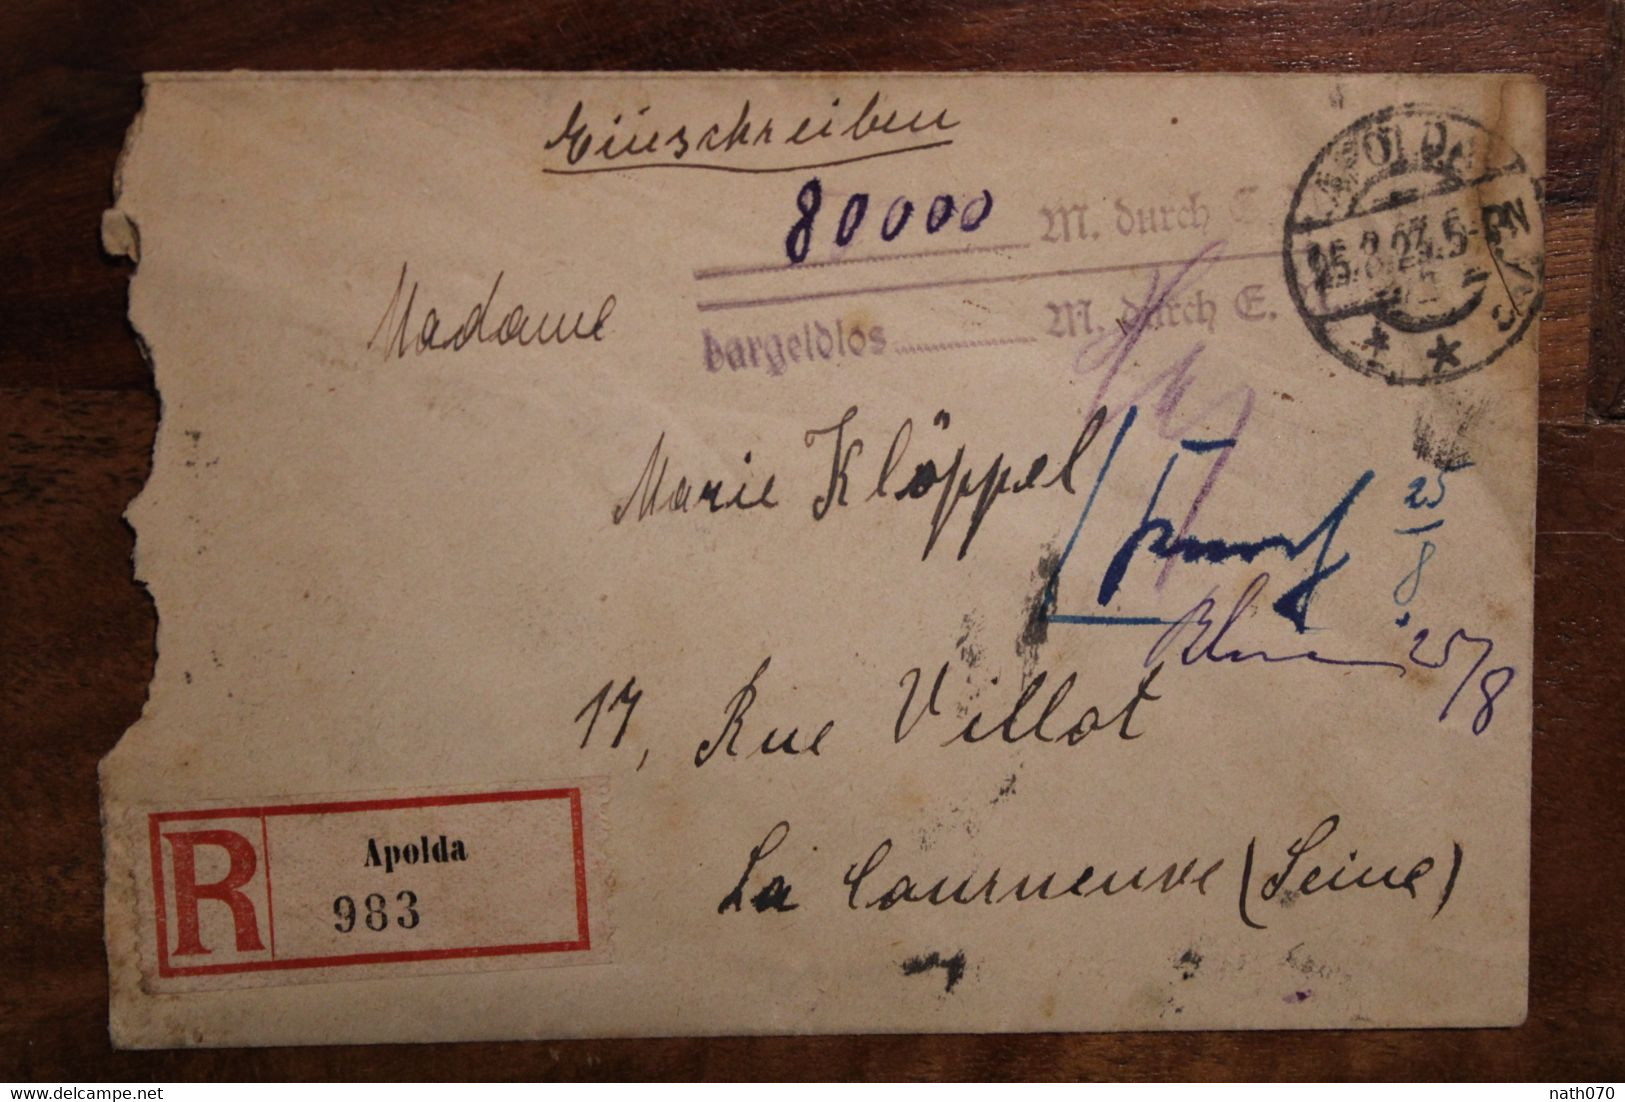 Einschreiben
80000 M. durch
bargeldlos M. durch E.
APOLDA
25.8.23.5-6N
Madame
Marie Klöppel
25/8
25/8
17, Rue Villot
La Courneuve (Seine)
R Apolda
983
delcampe.net
nath070